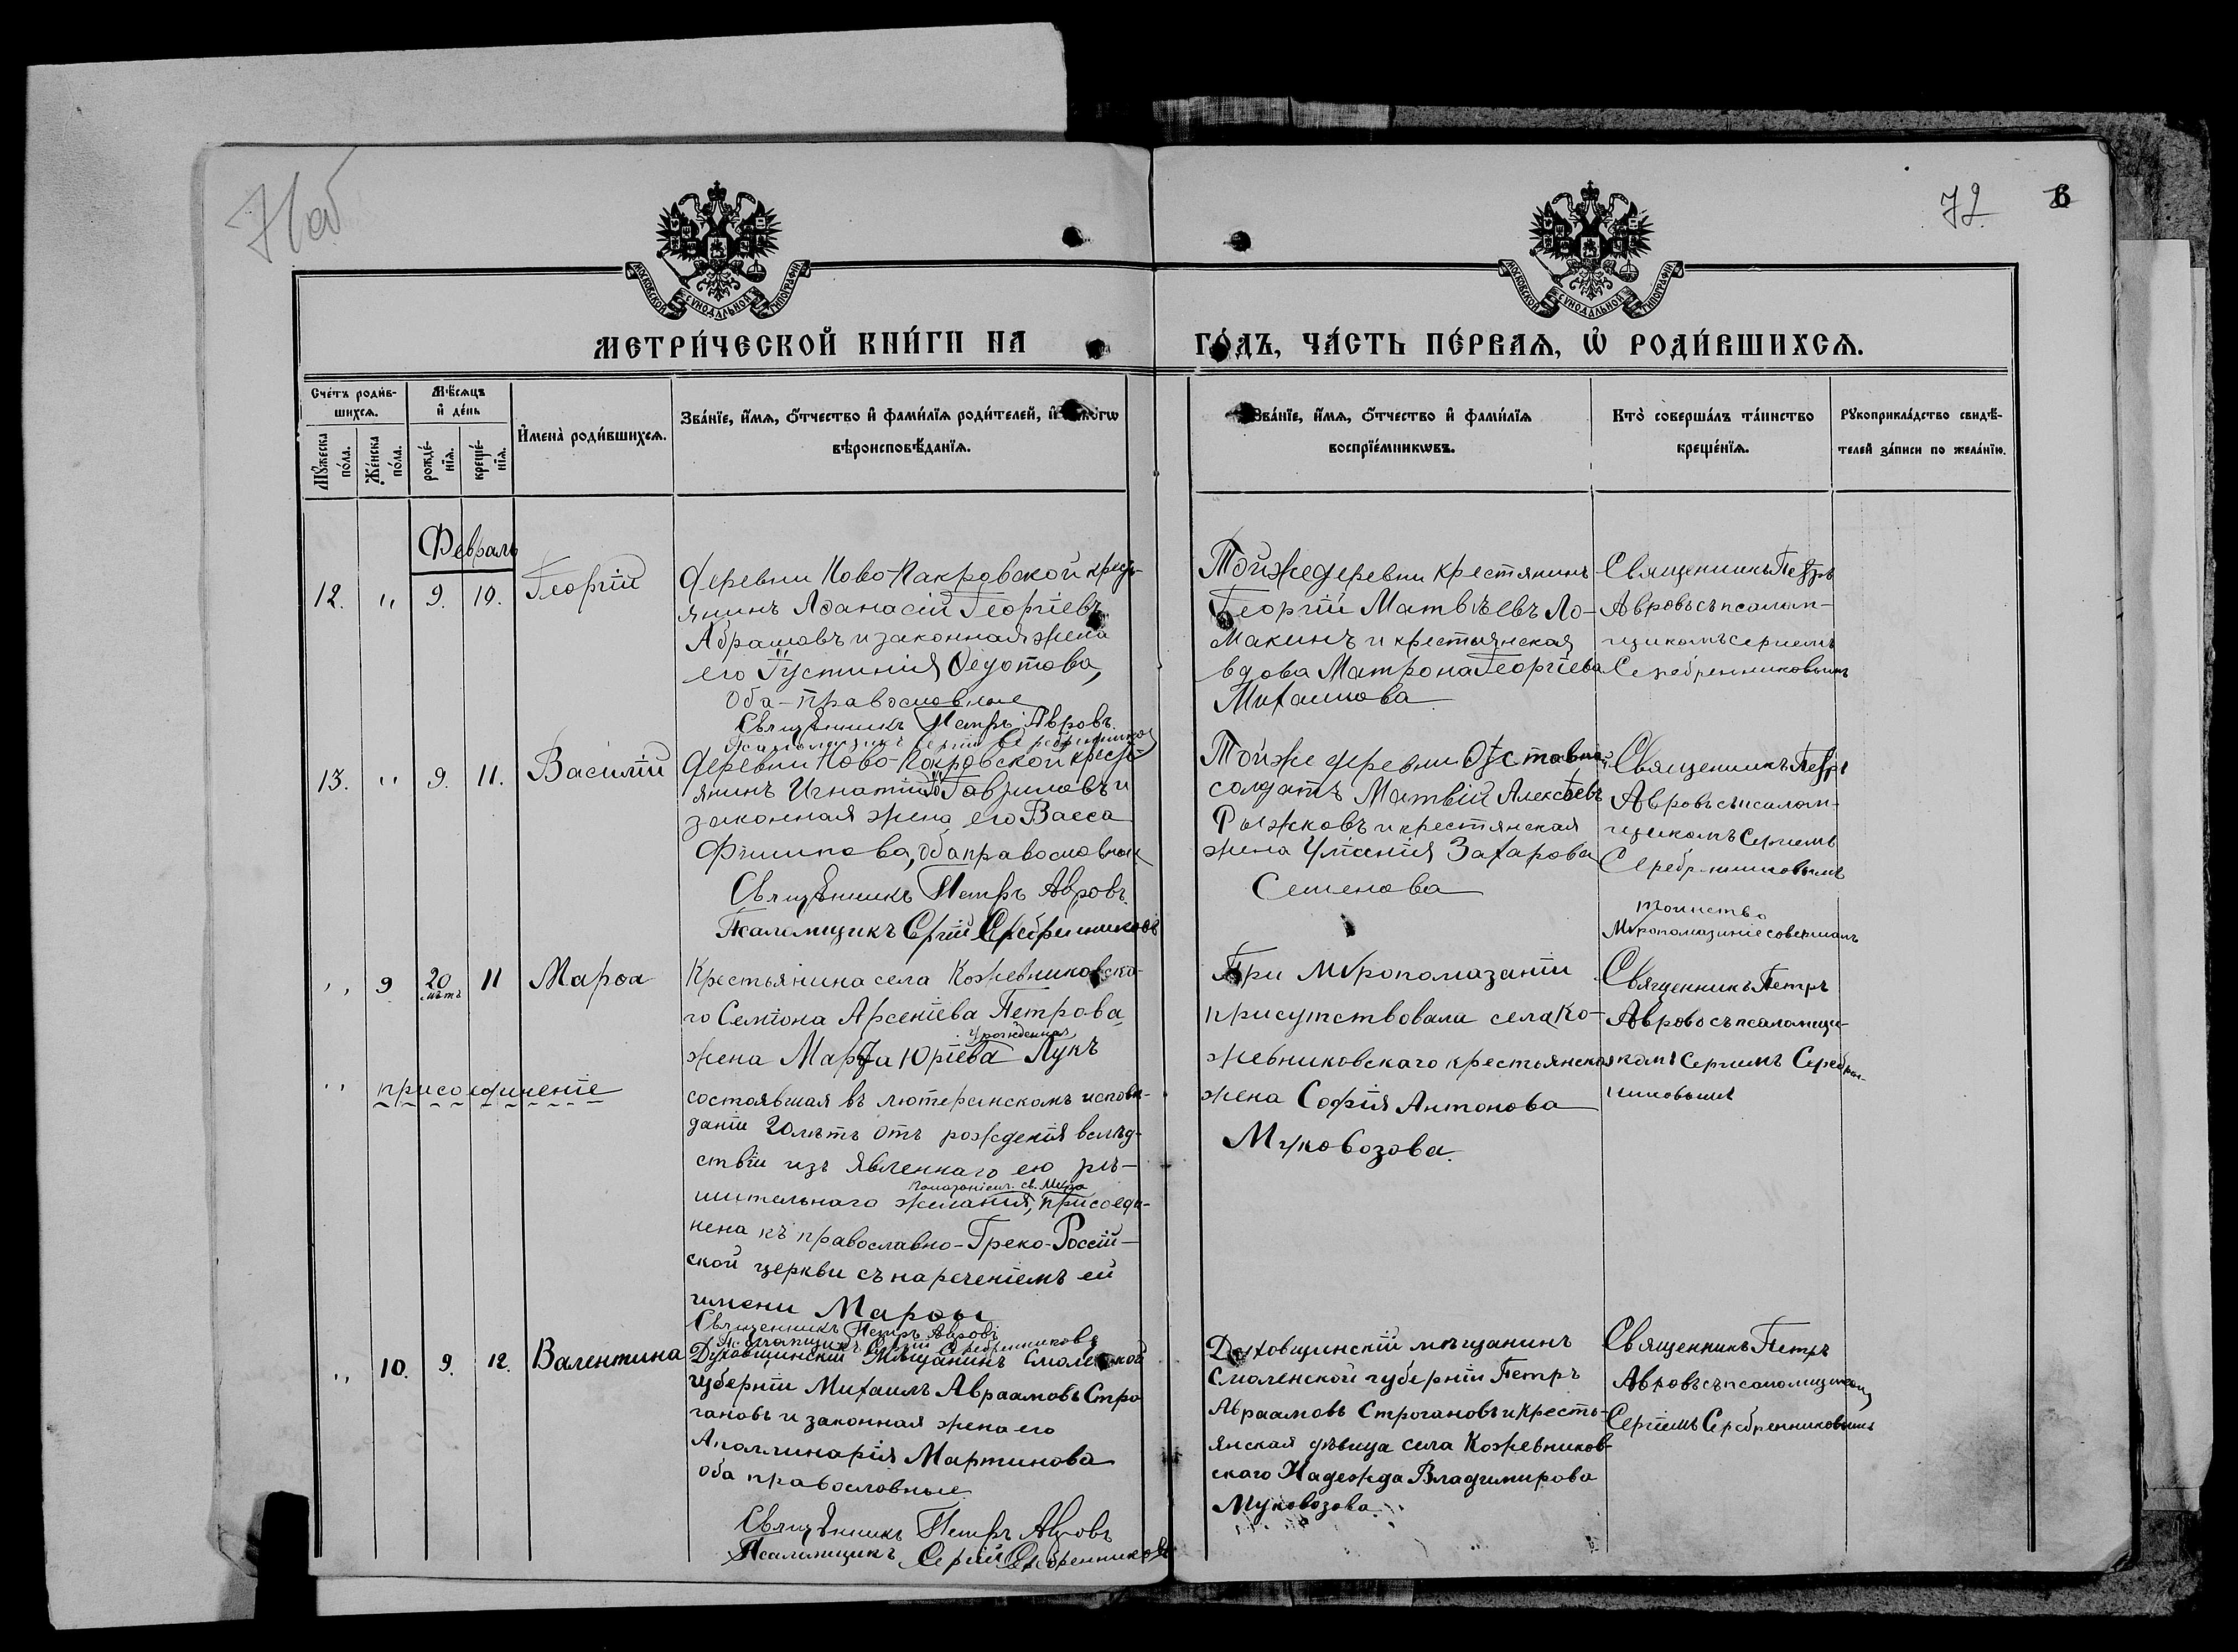 71 об
72
6
МОСКОВСКОЙ СѴНОДАЛЬНОЙ ТИПОГРАФІИ
МОСКОВСКОЙ СѴНОДАЛЬНОЙ ТИПОГРАФІИ
МЕТРИ́ЧЕСКОЙ КНИ́ГИ НА
ГО́ДЪ, ЧА́СТЬ ПЕ́РВАѦ, Ѽ РОДИ́ВШИХСѦ.
Сче́тъ роди́в-
шихсѧ.
Мꙋ́жеска
по́ла.
Же́нска
по́ла.
Мѣ́сѧцъ
и҆ де́нь
рожде́-
нїѧ.
креще́-
нїѧ.
И҆мена̀ роди́вшихсѧ.
Зва́нїе, и҆́мѧ, ѻ҆́тчество и҆ фами́лїѧ роди́телей, и҆
вѣроисповѣ́данїѧ.
Зва́нїе, и҆́мѧ, ѻ҆́тчество и҆ фами́лїѧ
воспрїе́мникѡвъ.
Кто̀ соверша́лъ та́инство
креще́нїѧ.
Рꙋкоприкла́дство свидѣ́-
телей за́писи по жела́нїю.
Февраль
12. " 9. 10. Георгій
Деревни Ново-Пакровской кресть-
янинъ Аѳанасій Георгіевъ
Абрамовъ и законная жена
его Густинія Ѳедотова,
Оба-православные
Священникъ Петръ Авровъ.
Псаломщикъ Сергій Серебренников
Тойже деревни крестянинъ
Георгій Матвѣевъ Ло-
макинъ и крестьянская
вдова Матрона Георгіева
Михаилова
Священникъ Петръ
Авровъ съ псалом-
щикомъ Сергіемъ
Серебренниковымъ
13. " 9. 11. Василій
Деревни Ново-Покровской кресть-
янинъ Игнатій Гавриловъ и
законная жена его Васса
Филипова, оба православные
Священникъ Петръ Авровъ.
Псаломщикъ Сергій Серебренниковъ
Тойже деревни Отставной
солдатъ Матвій Алексѣевъ
Рыжковъ и крестянская
жена Уліанія Захарова
Семенова
Священникъ Петръ
Авровъ съ псалом-
щикомъ Сергіемъ
Серебренниковымъ
" 9 20 лѣтъ 11 Марѳа
" присоединеніе
Крестьянина села Кожевниковска-
го Семіона Арсеніева Петрова
урожденная
жена Марѳа Юріева Лукъ
состоявшая въ лютеранскомъ исповѣ-
даніи 20 лѣтъ отъ рожденія вслѣд-
ствіи изъ явленнаго ею рѣ-
помазаніемъ св. Мѵра
шительнаго желанія, присоеди-
нена къ православно-Греко-Россій-
ской церкви съ нареченіемъ ей
имени Марѳы
Священникъ Петръ Авровъ
Псаломщикъ Сергій Серебренниковъ
При Мѵропомазаніи
присутствовала села Ко-
жевниковскаго крестьянская
жена Софія Антонова
Муковозова.
таинство
Мѵропомазаніе совершалъ
Священникъ Петръ
Авровъ съ псаломщи-
комъ Сергіемъ Серебрен-
никовымъ
" 10. 9. 12. Валентина
Духовщинскій Мѣщанинъ Смоленской
губерніи Михаилъ Авраамовъ Стро
гановъ и законная жена его
Аполлинарія Мартинова
оба православные
Священникъ Петръ Авровъ
Псаломщикъ Сергій Серебренниковъ
Духовщинскій мѣщанинъ
Смоленской губерніи Петръ
Авраамовъ Строгановъ и кресть-
янская дѣвица села Кожевников-
скаго Надежда Владимирова
Муковозова.
Священникъ Петръ
Авровъ съ псаломщикомъ
Сергіемъ Серебренниковымъ